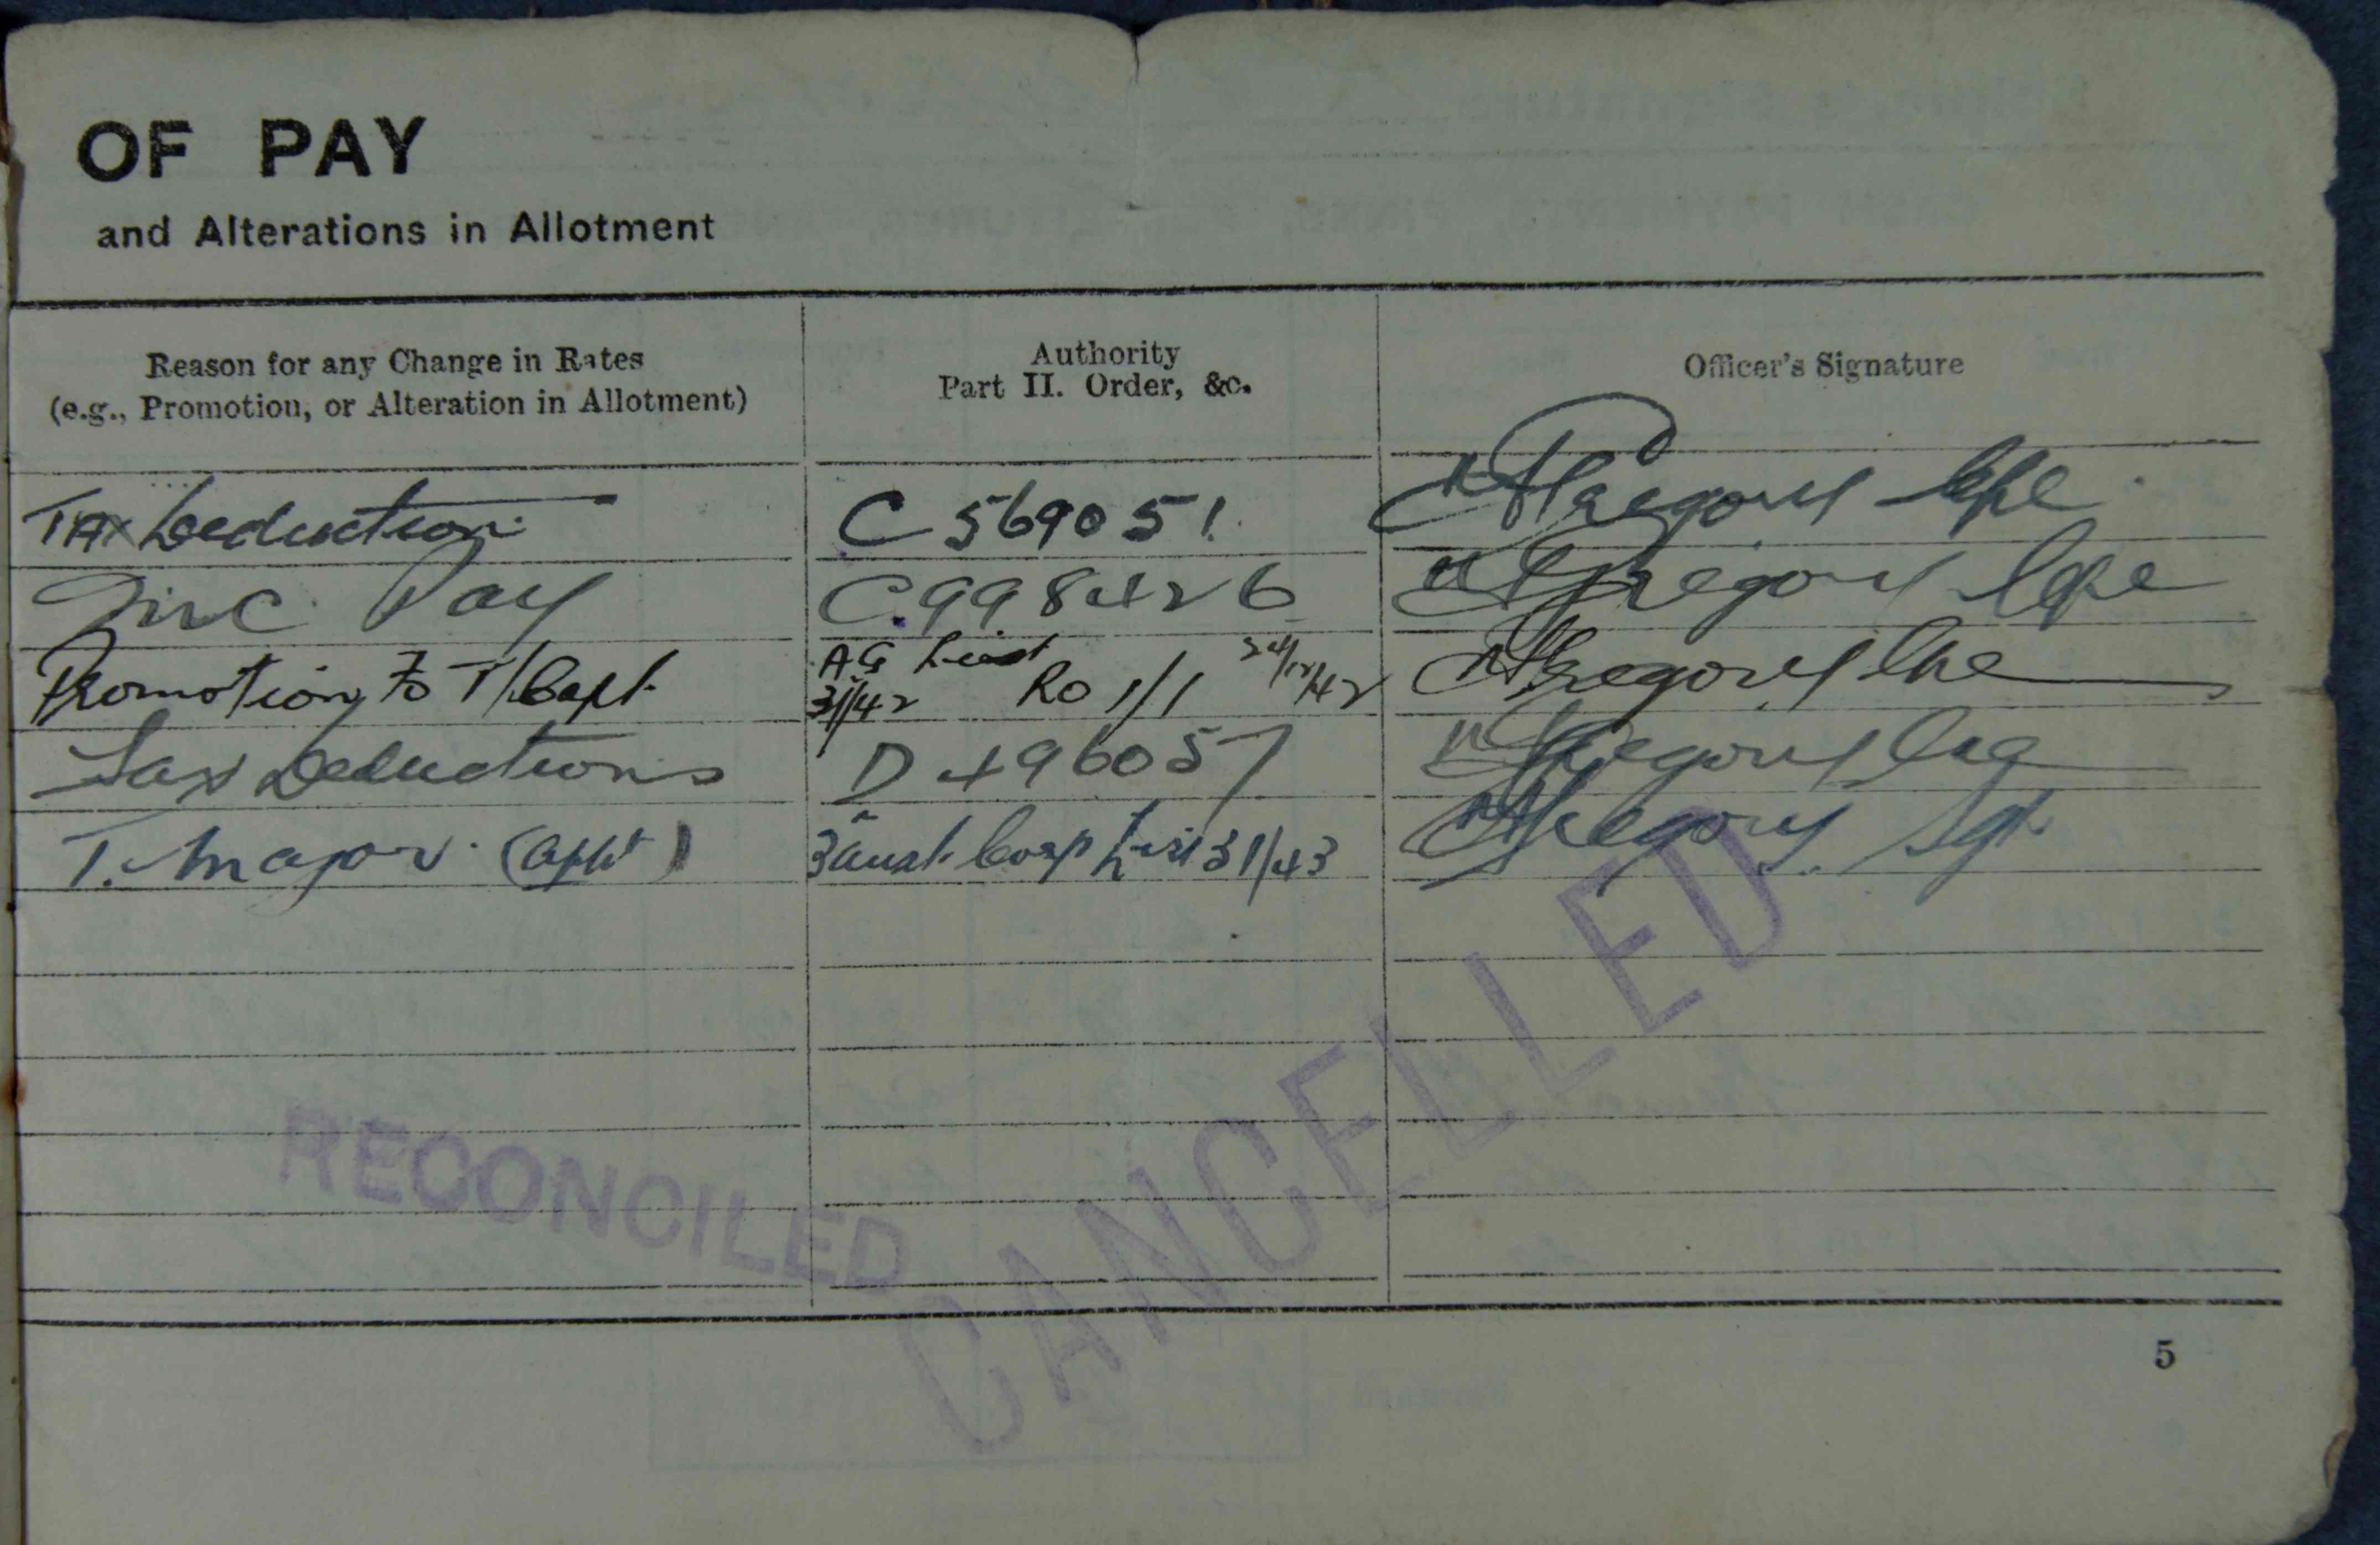 OF PAY
and Alterations in Allotment
Reason for any Change in Rates
(e.g., Promotion, or Alteration in Allotment)
Authority
Part II. Order, &c.
Officer's Signature
TAX Deduction C 569051 Gregory
Inc Pay C.998426 Gregory
Promotion to T/Capt. AG List 31/42 RO 1/1 24/12/42 Gregory
Tax Deductions D 496057 Gregory
T. Major (Appt) 3 Aust. Corp List 31/43 Gregory Sgt
RECONCILED
CANCELLED
5